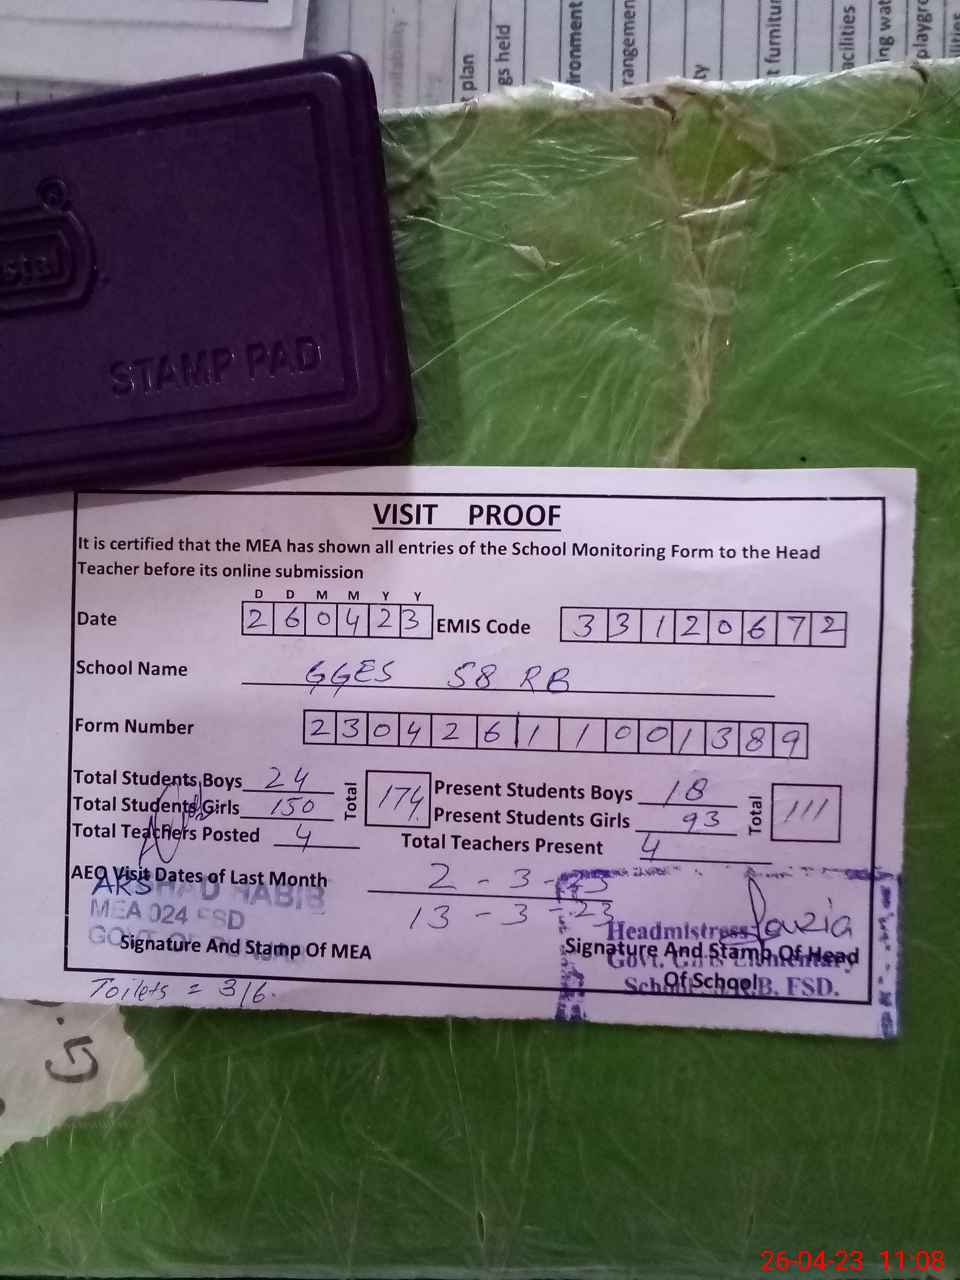 plan
gs held
ironment
rangemen
ty
t furnitur
acilities
ing wat
playgro
stal
STAMP PAD
VISIT PROOF
It is certified that the MEA has shown all entries of the School Monitoring Form to the Head
Teacher before its online submission
D D M M Y Y
Date 260423 EMIS Code 33120672
School Name GGES 58 RB
Form Number 23042611001389
Total Students Boys 24 Total 174 Present Students Boys 18 Total 111
Total Students Girls 150 Present Students Girls 93
Total Teachers Posted 4 Total Teachers Present 4
AEO Visit Dates of Last Month 2-3-23
13-3-23
ARSHAD HABIB
MEA 024 FSD
Signature And Stamp Of MEA
Fauzia
Headmistress
Signature And Stamp Of Head
Of School
Govt. Girls Elementary
FSD.
Toilets = 3/6.
26-04-23 11:08